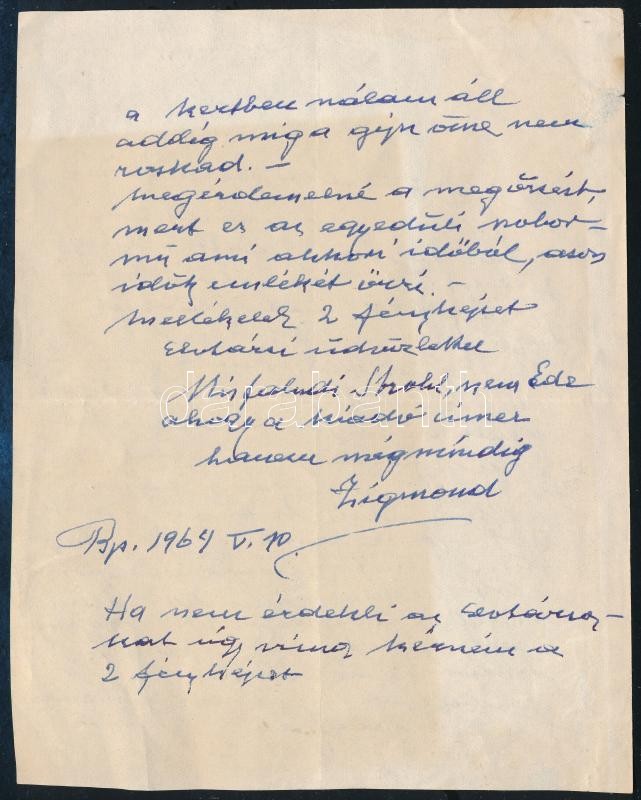 a kertben nálam áll
addig mig a gipsz össze nem
roskad. –
Megérdemelné a megőrzést,
mert ez az egyedüli szobor-
mű ami akkori időből, azon
idők emlékét őrzi. –
Mellékelek 2 fényképet
Elvtársi üdvözlettel
Kisfaludi Strobl, nem Ede
ahogy a kiadó ismer
hanem mégmindig
Zsigmond
Bp. 1964 V. 10.
Ha nem érdekli az elvtársa-
kat úgy vissza kérném a
2 fényképet
darabanth